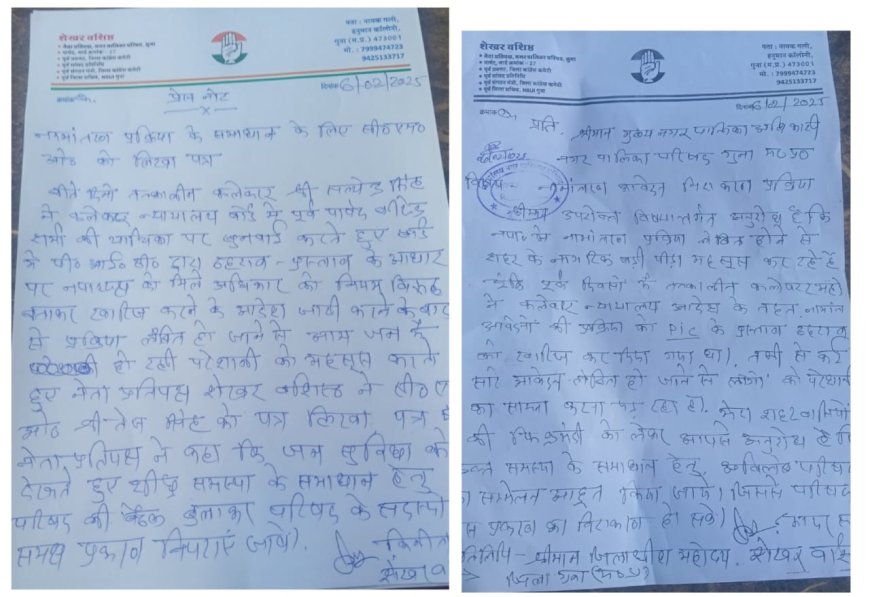 शेखर वशिष्ठ
• नेता प्रतिपक्ष, नगर पालिका परिषद, गुना
• पार्षद, वार्ड क्रमांक - 27
• पूर्व प्रवक्ता, जिला कांग्रेस कमेटी
• पूर्व सांसद प्रतिनिधि
• पूर्व संगठन मंत्री, जिला कांग्रेस कमेटी
• पूर्व जिला सचिव, NSUI गुना
पता : नायक गली,
हनुमान कॉलोनी,
गुना (म.प्र.) 473001
मो. : 7999474723
9425133717
क्रमांक
दिनांक 6/02/2025
प्रेस नोट
नामांतरण प्रक्रिया के समाधान के लिए सी०एम०
ओ० को लिखा पत्र
बीते दिनों तत्कालीन कलेक्टर श्री सत्येन्द्र सिंह
ने कलेक्टर न्यायालय कोर्ट में पूर्व पार्षद
शर्मा की याचिका पर सुनवाई करते हुए
में पी० आई० सी० द्वारा ठहराव - प्रस्ताव के आधार
पर नपाध्यक्ष को मिले अधिकार को नियम विरुद्ध
बताकर खारिज करने के आदेश जारी करने के बाद
से प्रक्रिया लंबित हो जाने से आम जन
हो रही परेशानी को महसूस करते
हुए नेता प्रतिपक्ष शेखर वशिष्ठ ने सी० एम
ओ० श्री तेज सिंह को पत्र लिखा पत्र में
नेता प्रतिपक्ष ने कहा कि जन सुविधा को
देखते हुए शीघ्र समस्या के समाधान हेतु
परिषद की बैठक बुलाकर परिषद के सदस्यों
समक्ष प्रकरण निपटाएं जाये।
शेखर व
शेखर वशिष्ठ
• नेता प्रतिपक्ष, नगर पालिका परिषद, गुना
• पार्षद, वार्ड क्रमांक - 27
• पूर्व प्रवक्ता, जिला कांग्रेस कमेटी
• पूर्व सांसद प्रतिनिधि
• पूर्व संगठन मंत्री, जिला कांग्रेस कमेटी
• पूर्व जिला सचिव, NSUI गुना
पता : नायक गली,
हनुमान कॉलोनी,
गुना (म.प्र.) 473001
मो. : 7999474723
9425133717
क्रमांक
दिनांक 6/02/2025
प्रति, श्रीमान मुख्य नगर पालिका अधिकारी
नगर पालिका परिषद गुना म०प्र०
विषय - नामांतरण आवेदन निराकरण प्रक्रिया
श्रीमान उपरोक्त विषयांतर्गत अनुरोध है कि
नपा० में नामांतरण प्रक्रिया लंबित होने से
शहर के नागरिक बड़ी पीड़ा महसूस कर रहे है
पूर्व दिवसों में तत्कालीन कलेक्टर महो
ने कलेक्टर न्यायालय आदेश के तहत नामांत
आवेदनों की प्रक्रिया का PIC के प्रस्ताव ठहराव
को खारिज कर दिया गया था। तभी से कई
सारे आवेदन लंबित हो जाने से लोगों को परेशानी
का सामना करना पड़ रहा है। मेरा शहरवासियों
की को लेकर आपसे अनुरोध है कि
उक्त समस्या के समाधान हेतु अविलंब परिषद
का सम्मेलन आहूत किया जाये। जिससे परिषद
इस प्रकरण का निराकरण हो सके।
प्रतिलिपि - श्रीमान जिलाधीश महोदय, शेखर वशि
जिला गुना (म०प्र०)